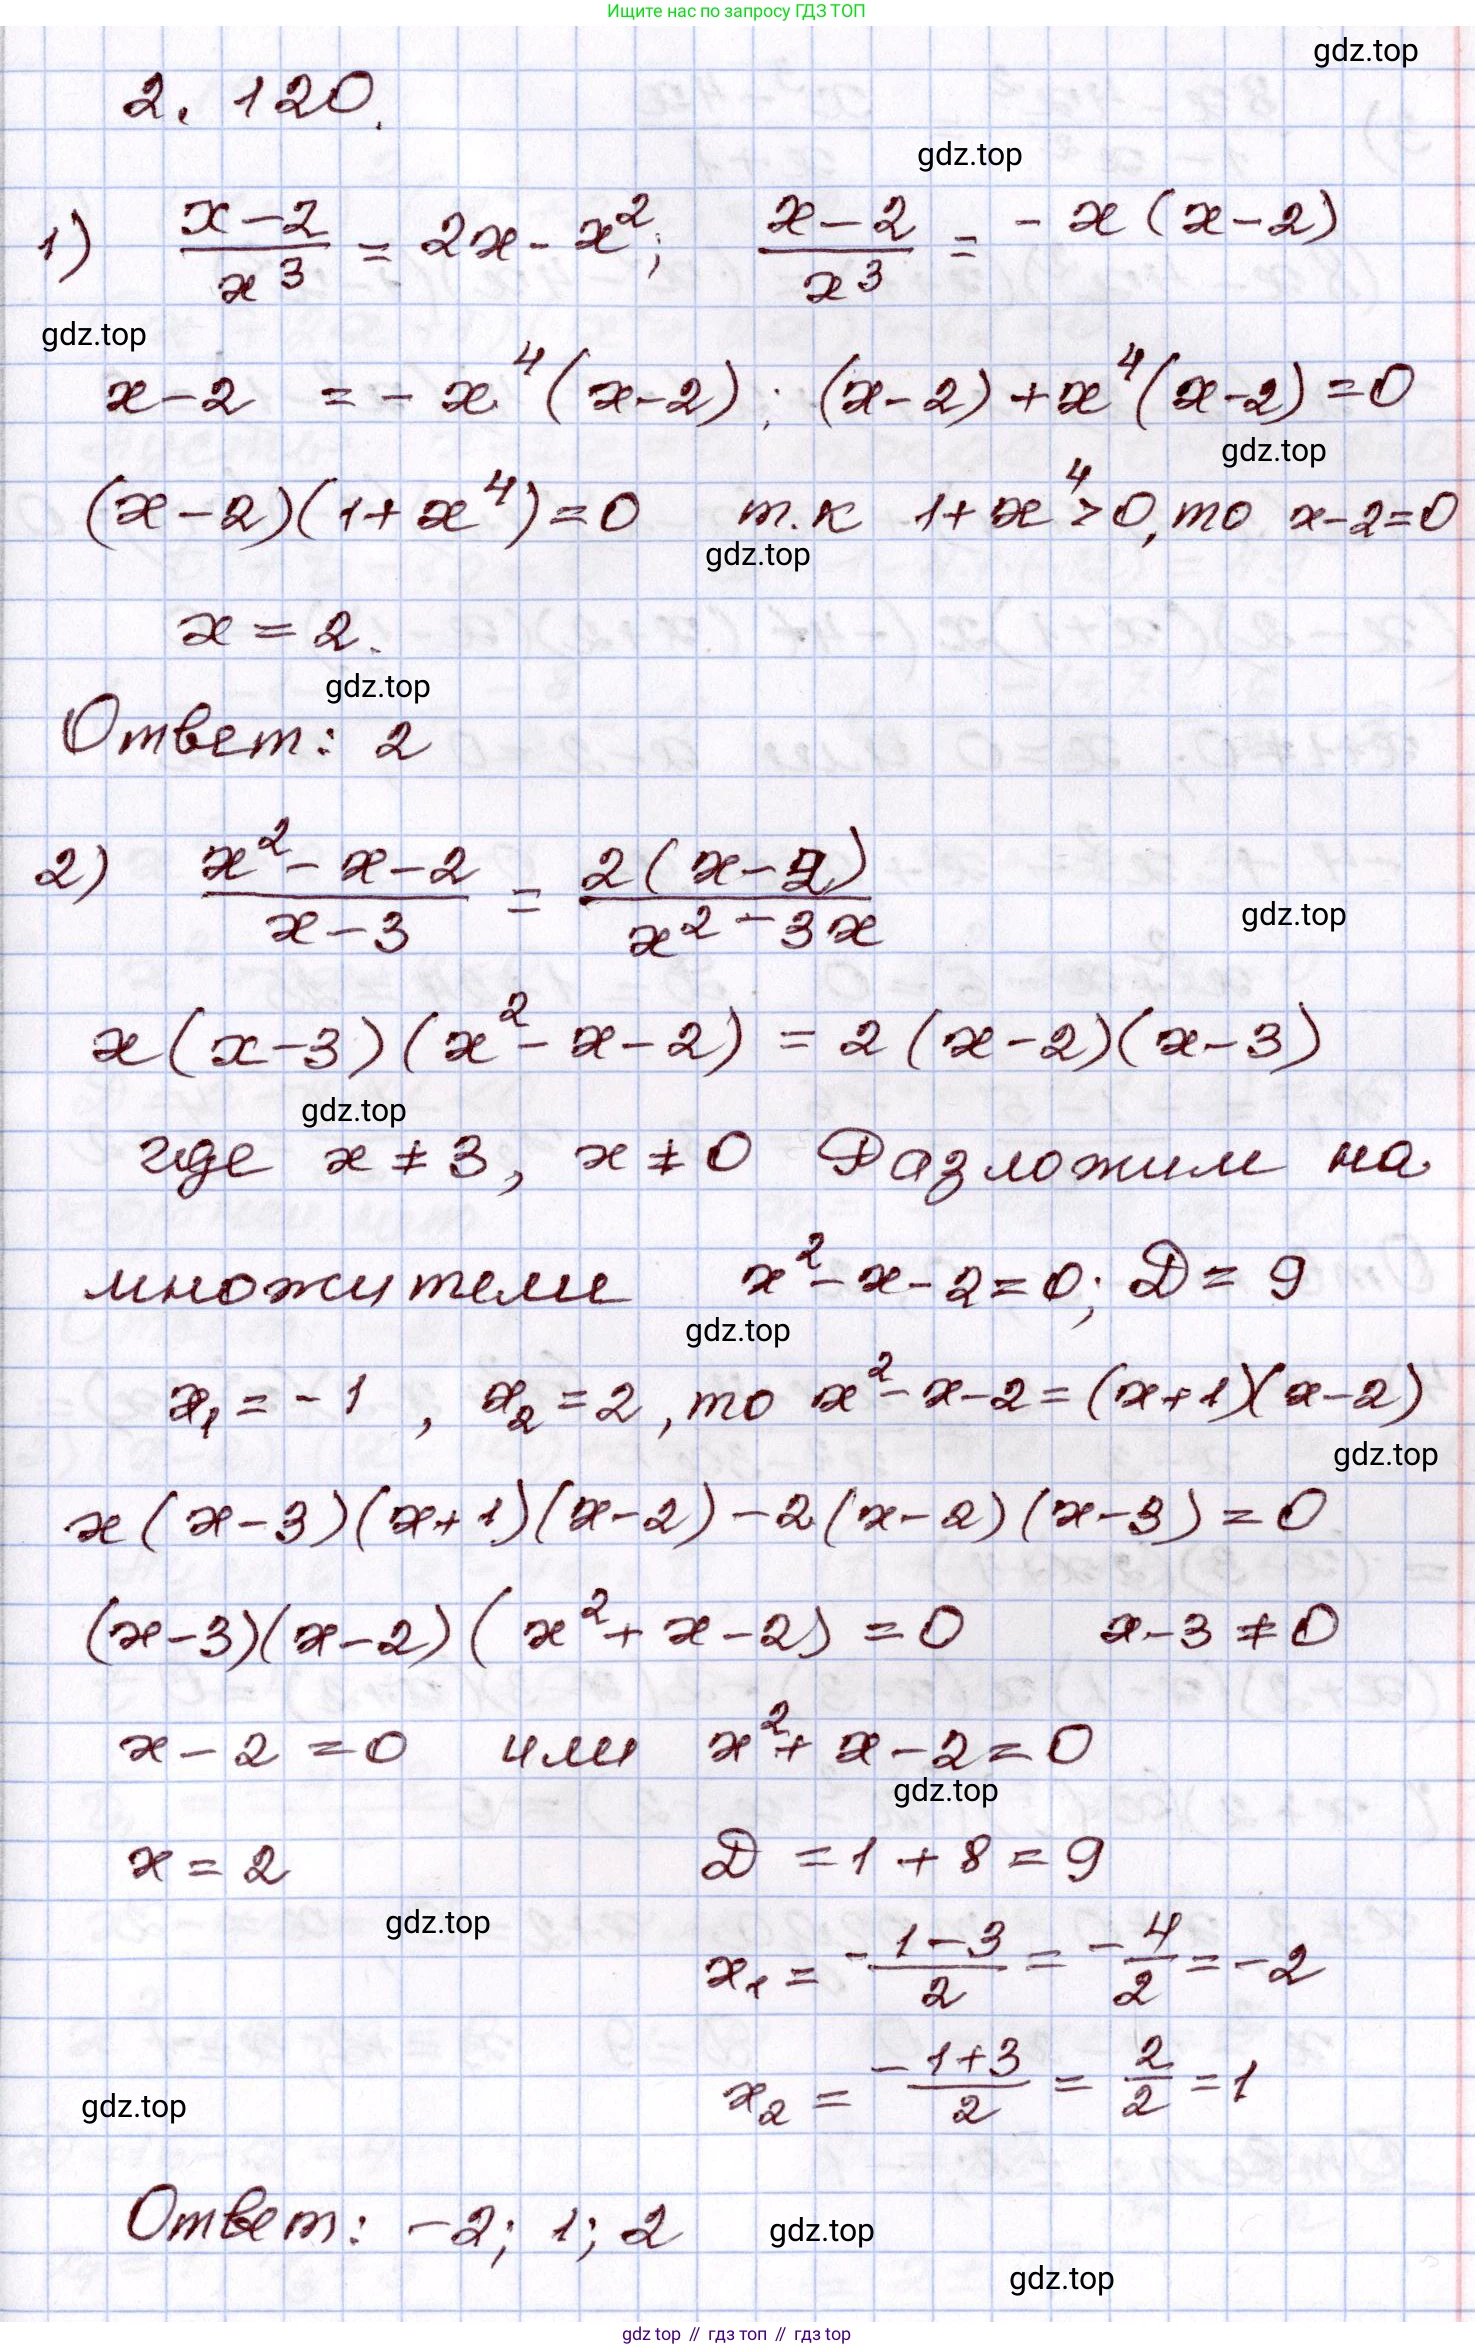 Ищите нас по запросу ГДЗ ТОП
gdz.top
2.120.
gdz.top
1) (x-2)/x³ = 2x - x²; (x-2)/x³ = -x(x-2)
gdz.top
x-2 = -x⁴(x-2); (x-2)+x⁴(x-2)=0
gdz.top
(x-2)(1+x⁴)=0 т.к 1+x⁴>0, то x-2=0
gdz.top
x=2.
gdz.top
Ответ: 2
2) (x²-x-2)/(x-3) = 2(x-2)/(x²-3x)
gdz.top
x(x-3)(x²-x-2) = 2(x-2)(x-3)
gdz.top
где x≠3, x≠0 Разложим на
множители x²-x-2=0; D=9
gdz.top
x₁=-1, x₂=2, то x²-x-2=(x+1)(x-2)
gdz.top
x(x-3)(x+1)(x-2)-2(x-2)(x-3)=0
(x-3)(x-2)(x²+x-2)=0 x-3≠0
x-2=0 или x²+x-2=0
gdz.top
x=2 D=1+8=9
gdz.top
x₁ = (-1-3)/2 = -4/2 = -2
x₂ = (-1+3)/2 = 2/2 = 1
gdz.top
Ответ: -2; 1; 2
gdz.top
gdz.top
gdz top // гдз топ // гдз top